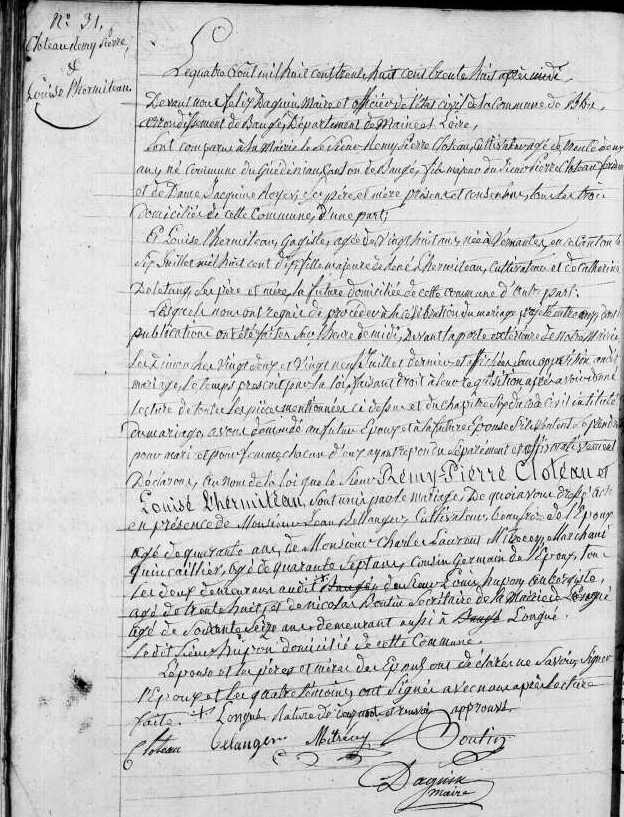 N° 31.
Cloteau Remy Pierre,
&
Louise Lhermiteau
Le quatre Août mil huit cent trente huit cent trente huit après midi.
Devant nous Felix Daguin Maire et officier de l'état civil de la commune de
arrondissement de Baugé, Département de Maine et Loire,
sont comparus à la Mairie le Sieur Remy Pierre Cloteau, Cultivateur agé de trente
ans, né commune du Guédéniau, Canton de Baugé, fils majeur du Sieur Pierre Cloteau
et de Dame Jacquine Royer, ses père et mère présens et consentans, tous les trois
domiciliés de cette Commune, d'une part;
Et Louise Lhermiteau, Gagiste, agée de Vingt huit ans, née à Vernantes, en ce Canton le
Juillet mil huit cent dix, fille majeure de René Lhermiteau, Cultivateur et de Catherine
ses père et mère, la future domiciliée de cette commune d'autre part.
Lesquels nous ont requis de procéder à la célébration du mariage projeté entre eux, dont
publications ont été faites sur l'heure de midi, devant la porte extérieure de notre Mairie
les dimanches vingt deux et Vingt neuf Juillet dernier et affichées sans opposition audit
mariage, le temps prescrit par la loi, faisant droit à leur réquisition après avoir donné
lecture de toutes les pièces mentionnées ci dessus et du chapitre Six du code Civil intitulé
Du mariage, avons demandé au futur Epoux et à la future Epouse s'ils veulent se prendre
pour mari et pour femme chacun d'eux ayant répondu séparément et affirmativement
Déclarons, au nom de la loi que le Sieur Rémy-Pierre Cloteau et
Louise Lhermiteau, sont unis par le mariage. De quoi avons dressé acte
en présence de Monsieur Jean Bellanger, Cultivateur, beaufrère de l'Epoux
agé de quarante ans, de Monsieur Charles Laurent Mitrecey, Marchand
quincaillier, agé de quarante Sept ans, cousin Germain de l'Epoux, tous
les deux demeurans audit Baugé, du Sieur Louis hupon, aubergiste,
agé de trente huit, et de Nicolas Boutin Secrétaire de la Mairie de Longué
agé de Soixante Seize ans demeurant aussi à Baugé Longué.
le dit Sieur hupon domicilié de cette Commune.
L'épouse et les pères et mères des Epoux ont déclaré ne savoir Signer
l'Epoux et les quatre témoins ont Signé avec nous après lecture
faite. Longué, rature de mot et renvoi approuvé.
Cloteau Belanger Mitrecey Boutin
Daguin
maire